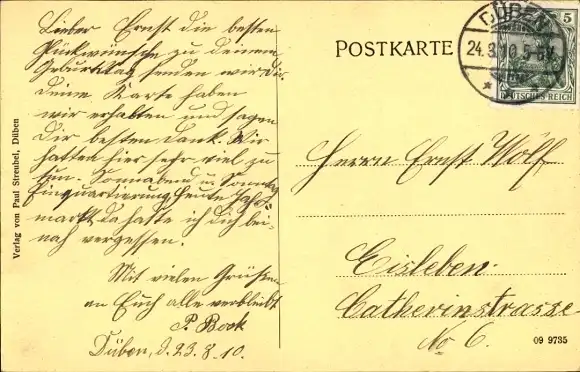 Lieber Ernst die besten
Glückwünsche zu deinem
Geburtstag senden wir dir.
deine Karte haben
wir erhalten und sagen
dir besten Dank. Wir
hatten hier sehr viel zu
tun. Sonnabend u. Sonntag
Einquartierung heute Jahr-
markt, da hatte ich dich bei-
nah vergessen.
Mit vielen Grüßen
an Euch alle verbleibt
P. Book
Düben, d. 23. 8. 10.
Verlag von Paul Streubel, Düben
POSTKARTE
DÜBEN
24.8.10. 5-6V.
5
DEUTSCHES REICH
Herrn Ernst Wolf
Eisleben.
Catherinstrasse
No 6.
09 9735